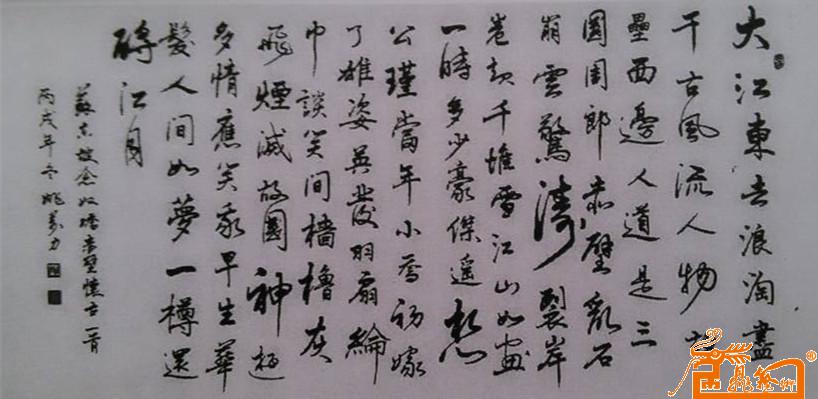 大江東去浪淘盡
千古風流人物故
壘西邊人道是三
國周郎赤壁亂石
崩雲驚濤裂岸
卷起千堆雪江山如畫
一時多少豪傑遙想
公瑾當年小喬初嫁
了雄姿英發羽扇綸
巾談笑间檣櫓灰
飛煙滅故國神遊
多情應笑我早生華
髮人间如夢一樽還
酹江月
蘇東坡念奴嬌赤壁懷古一首
丙戌年冬姚力